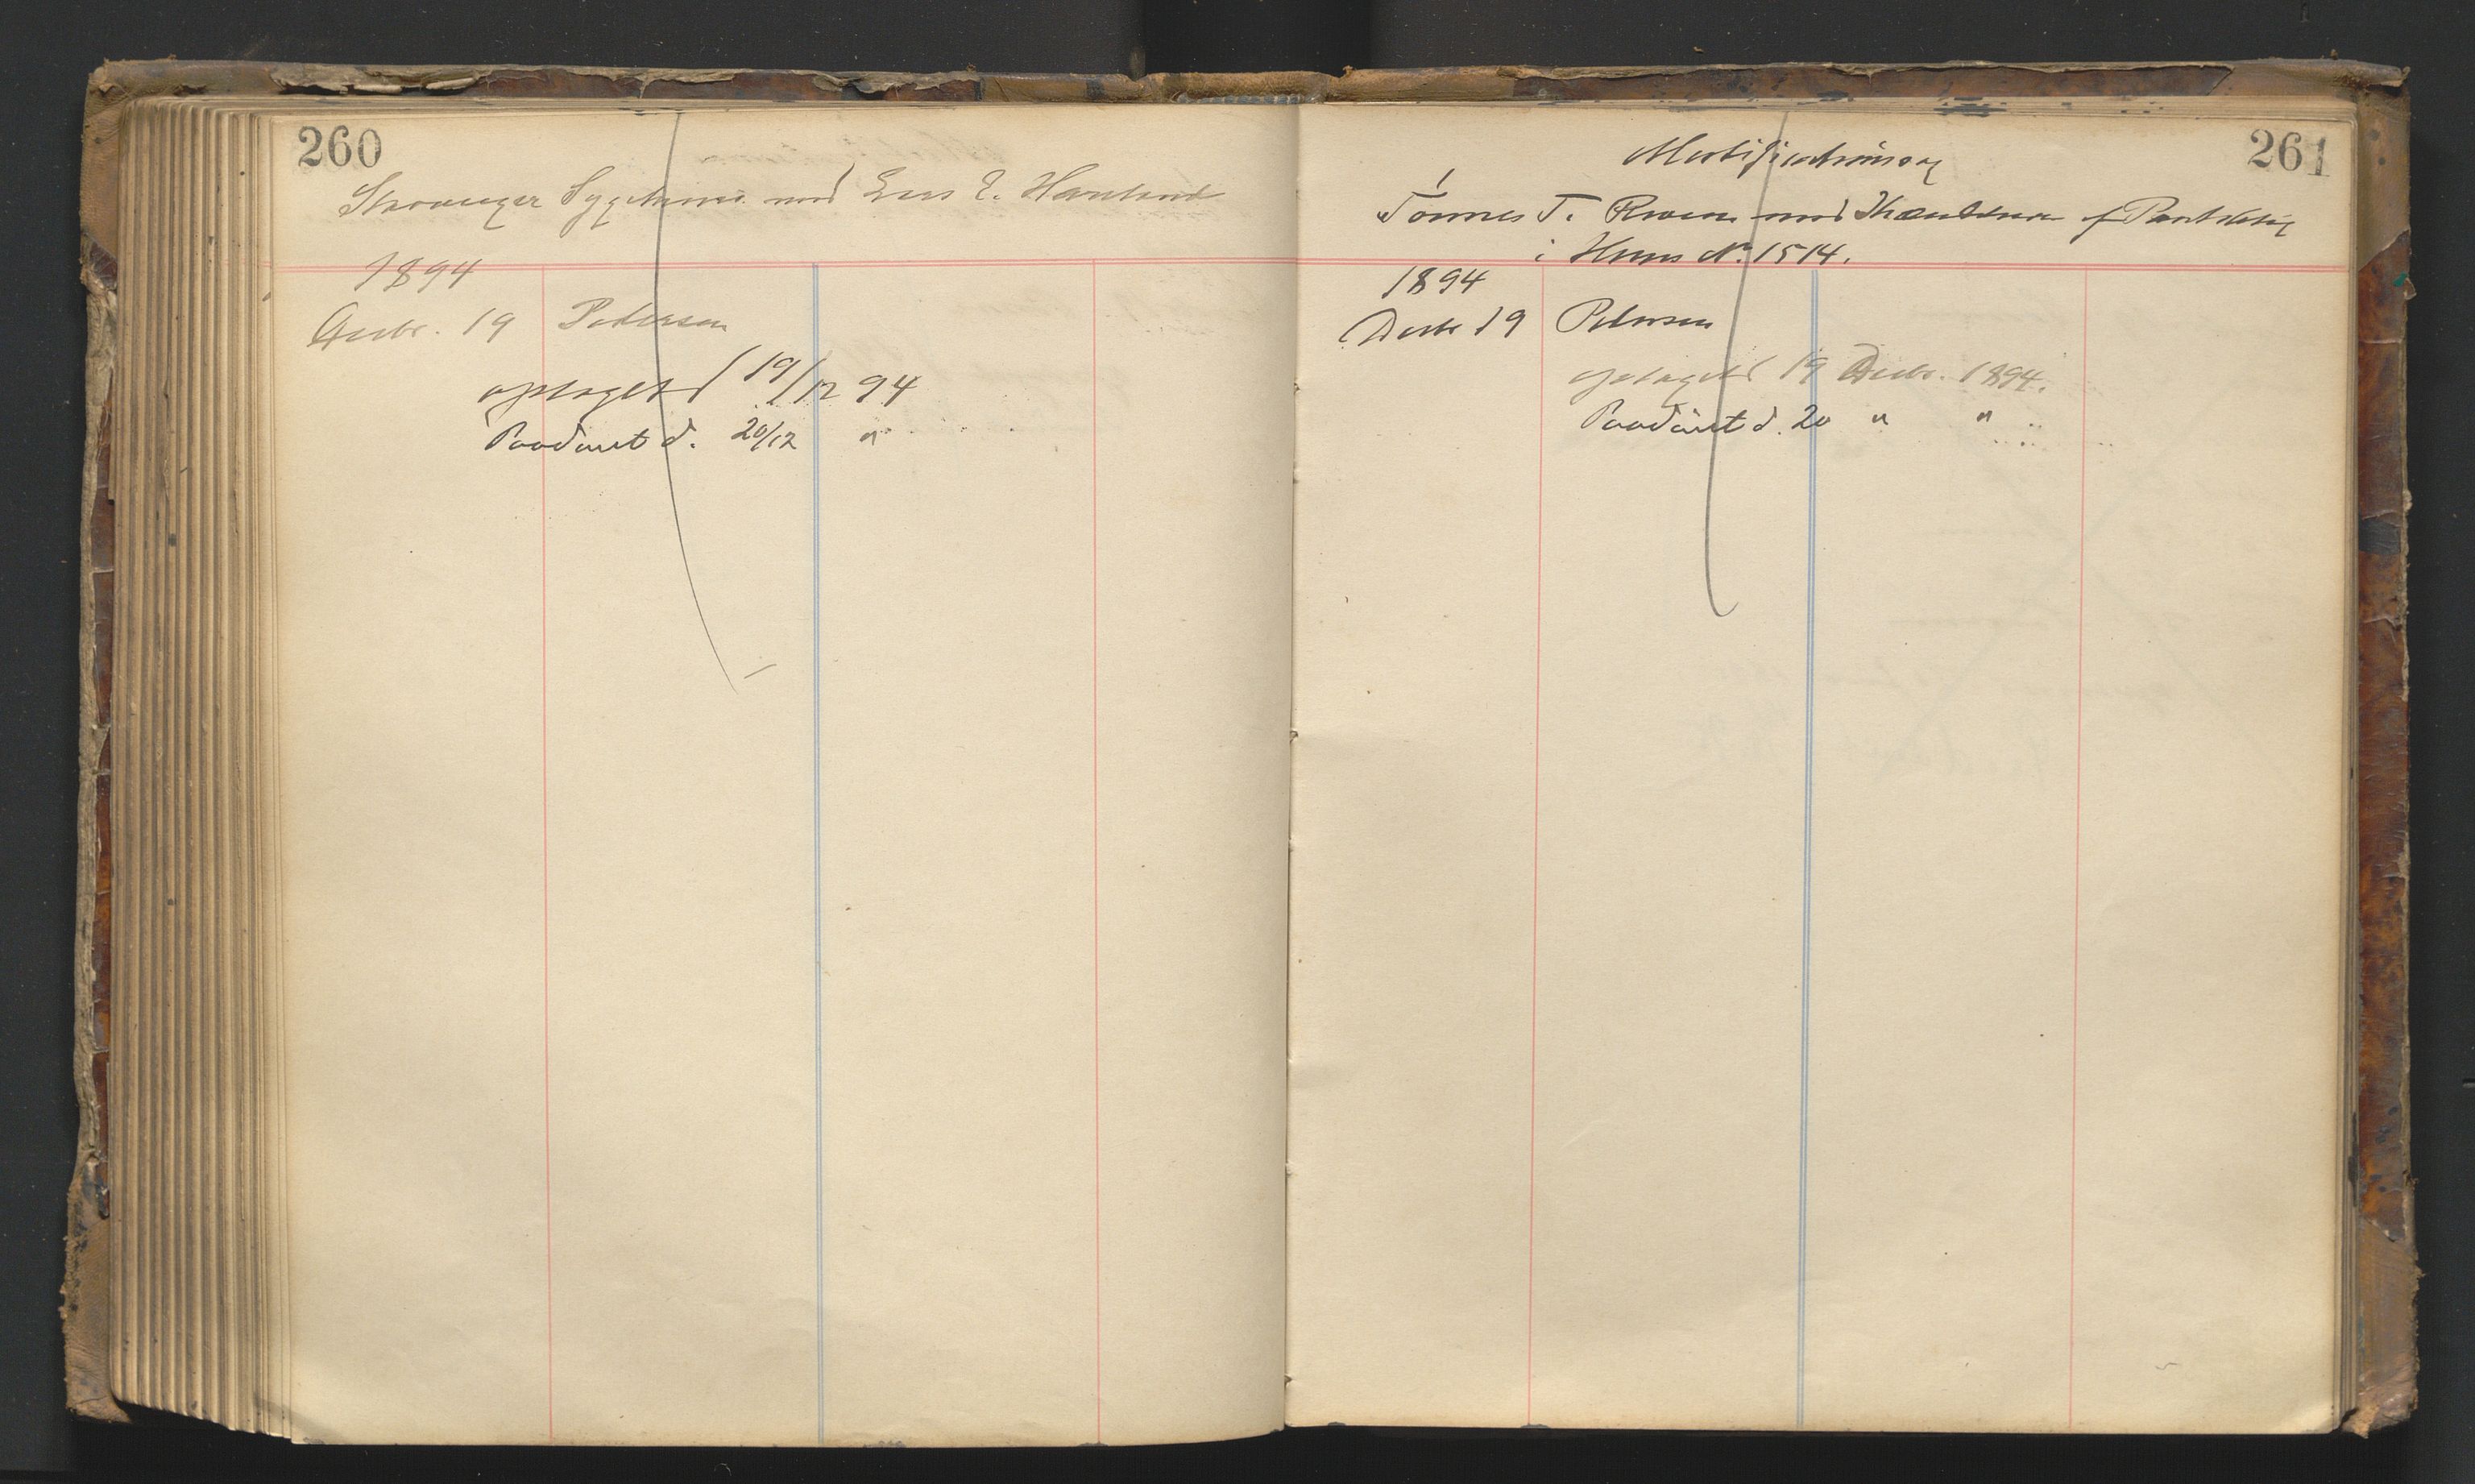 260
Stavanger Sygehuus mod Lars E. Haaland
1894
Decbr. 19 Pedersen
optaget d 19/12 94
Paadömt d. 20/12 "
261
Mortifikationssag
Tönnes T. mod Ihændehaver af Panteoblig
i Huus No. 1514.
1894
Decbr 19 Pedersen
optaget d 19 Decbr. 1894.
Paadömt d. 20 " "